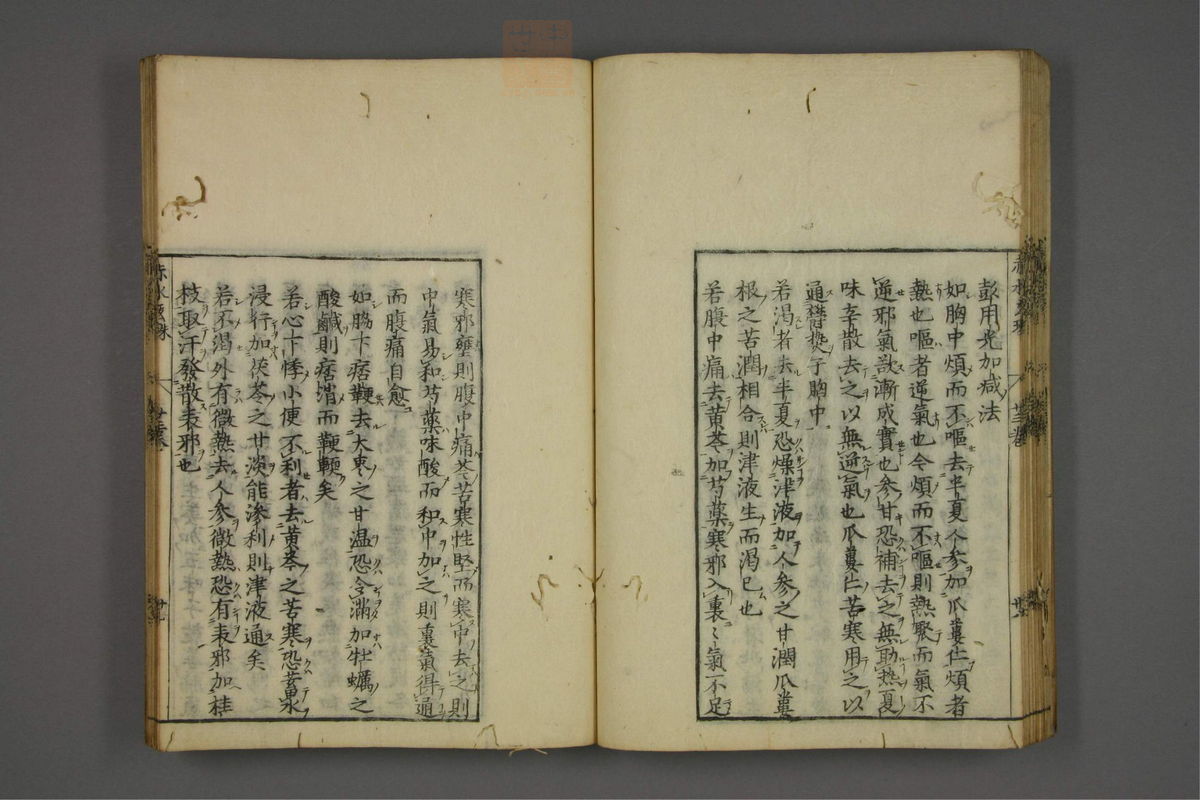 彭用光加減法
如胸中煩而不嘔去半夏人參加瓜蔞仁煩者
熱也嘔者逆氣也令煩而不嘔則熱聚而氣不
逆邪氣欲漸成實也參甘恐補去之無助熱夏
味辛散去之以無逆氣也瓜蔞仁苦寒用之以
通欝熱于胸中
若渴者去半夏恐燥津液加人參之甘潤瓜蔞
根之苦潤相合則津液生而渴已也
若腹中痛去黄芩加芍藥寒邪入裏〻氣不足
寒邪壅則腹中痛芩苦寒性堅而寒中去之則
中氣易和芍藥味酸而和中加之則裏氣得通
而腹痛自愈
如脇下痞鞕去大棗之甘温恐令滿加牡蠣之
酸鹹則痞消而鞕軟矣
若心下悸小便不利者去黄芩之苦寒恐蓄水
浸行加茯苓之甘淡能滲利則津液通矣
若不渴外有微熱去人參微熱恐有表邪加桂
枝取汗發散表邪也
赤水玄珠